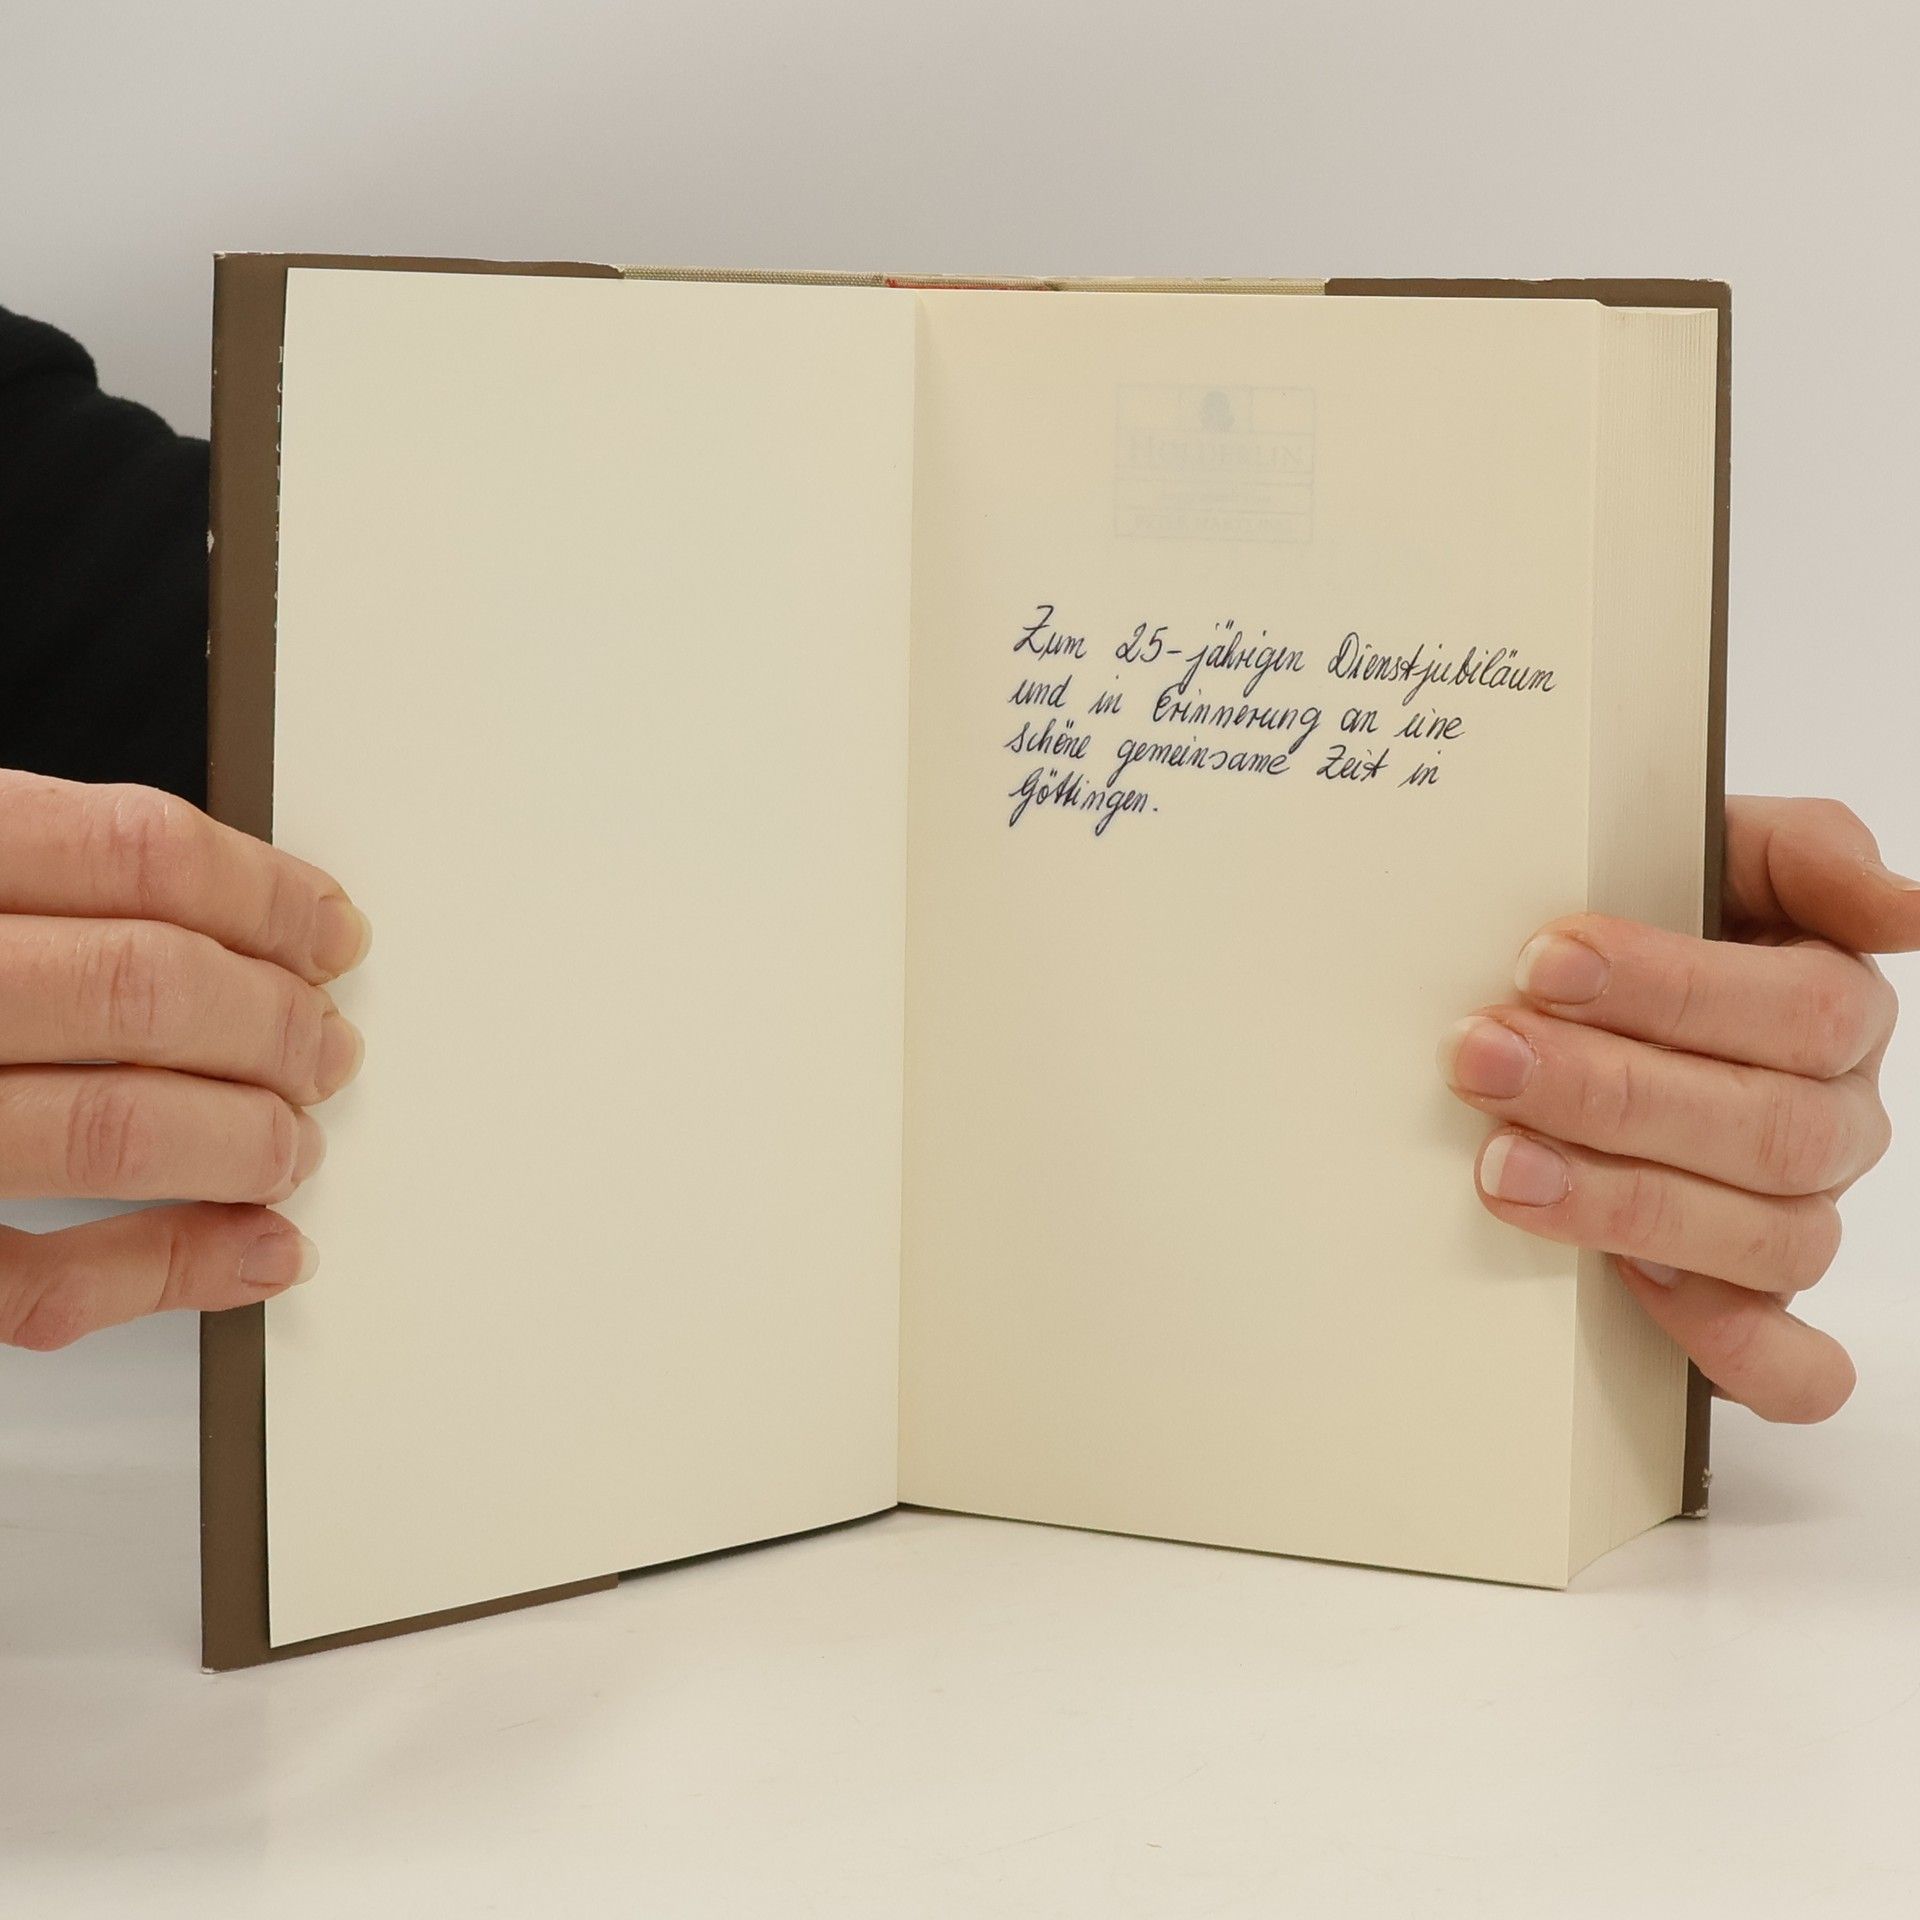 HÖLDERLIN
Zum 25-jährigen Dienstjubiläum
und in Erinnerung an eine
schöne gemeinsame Zeit in
Göttingen.